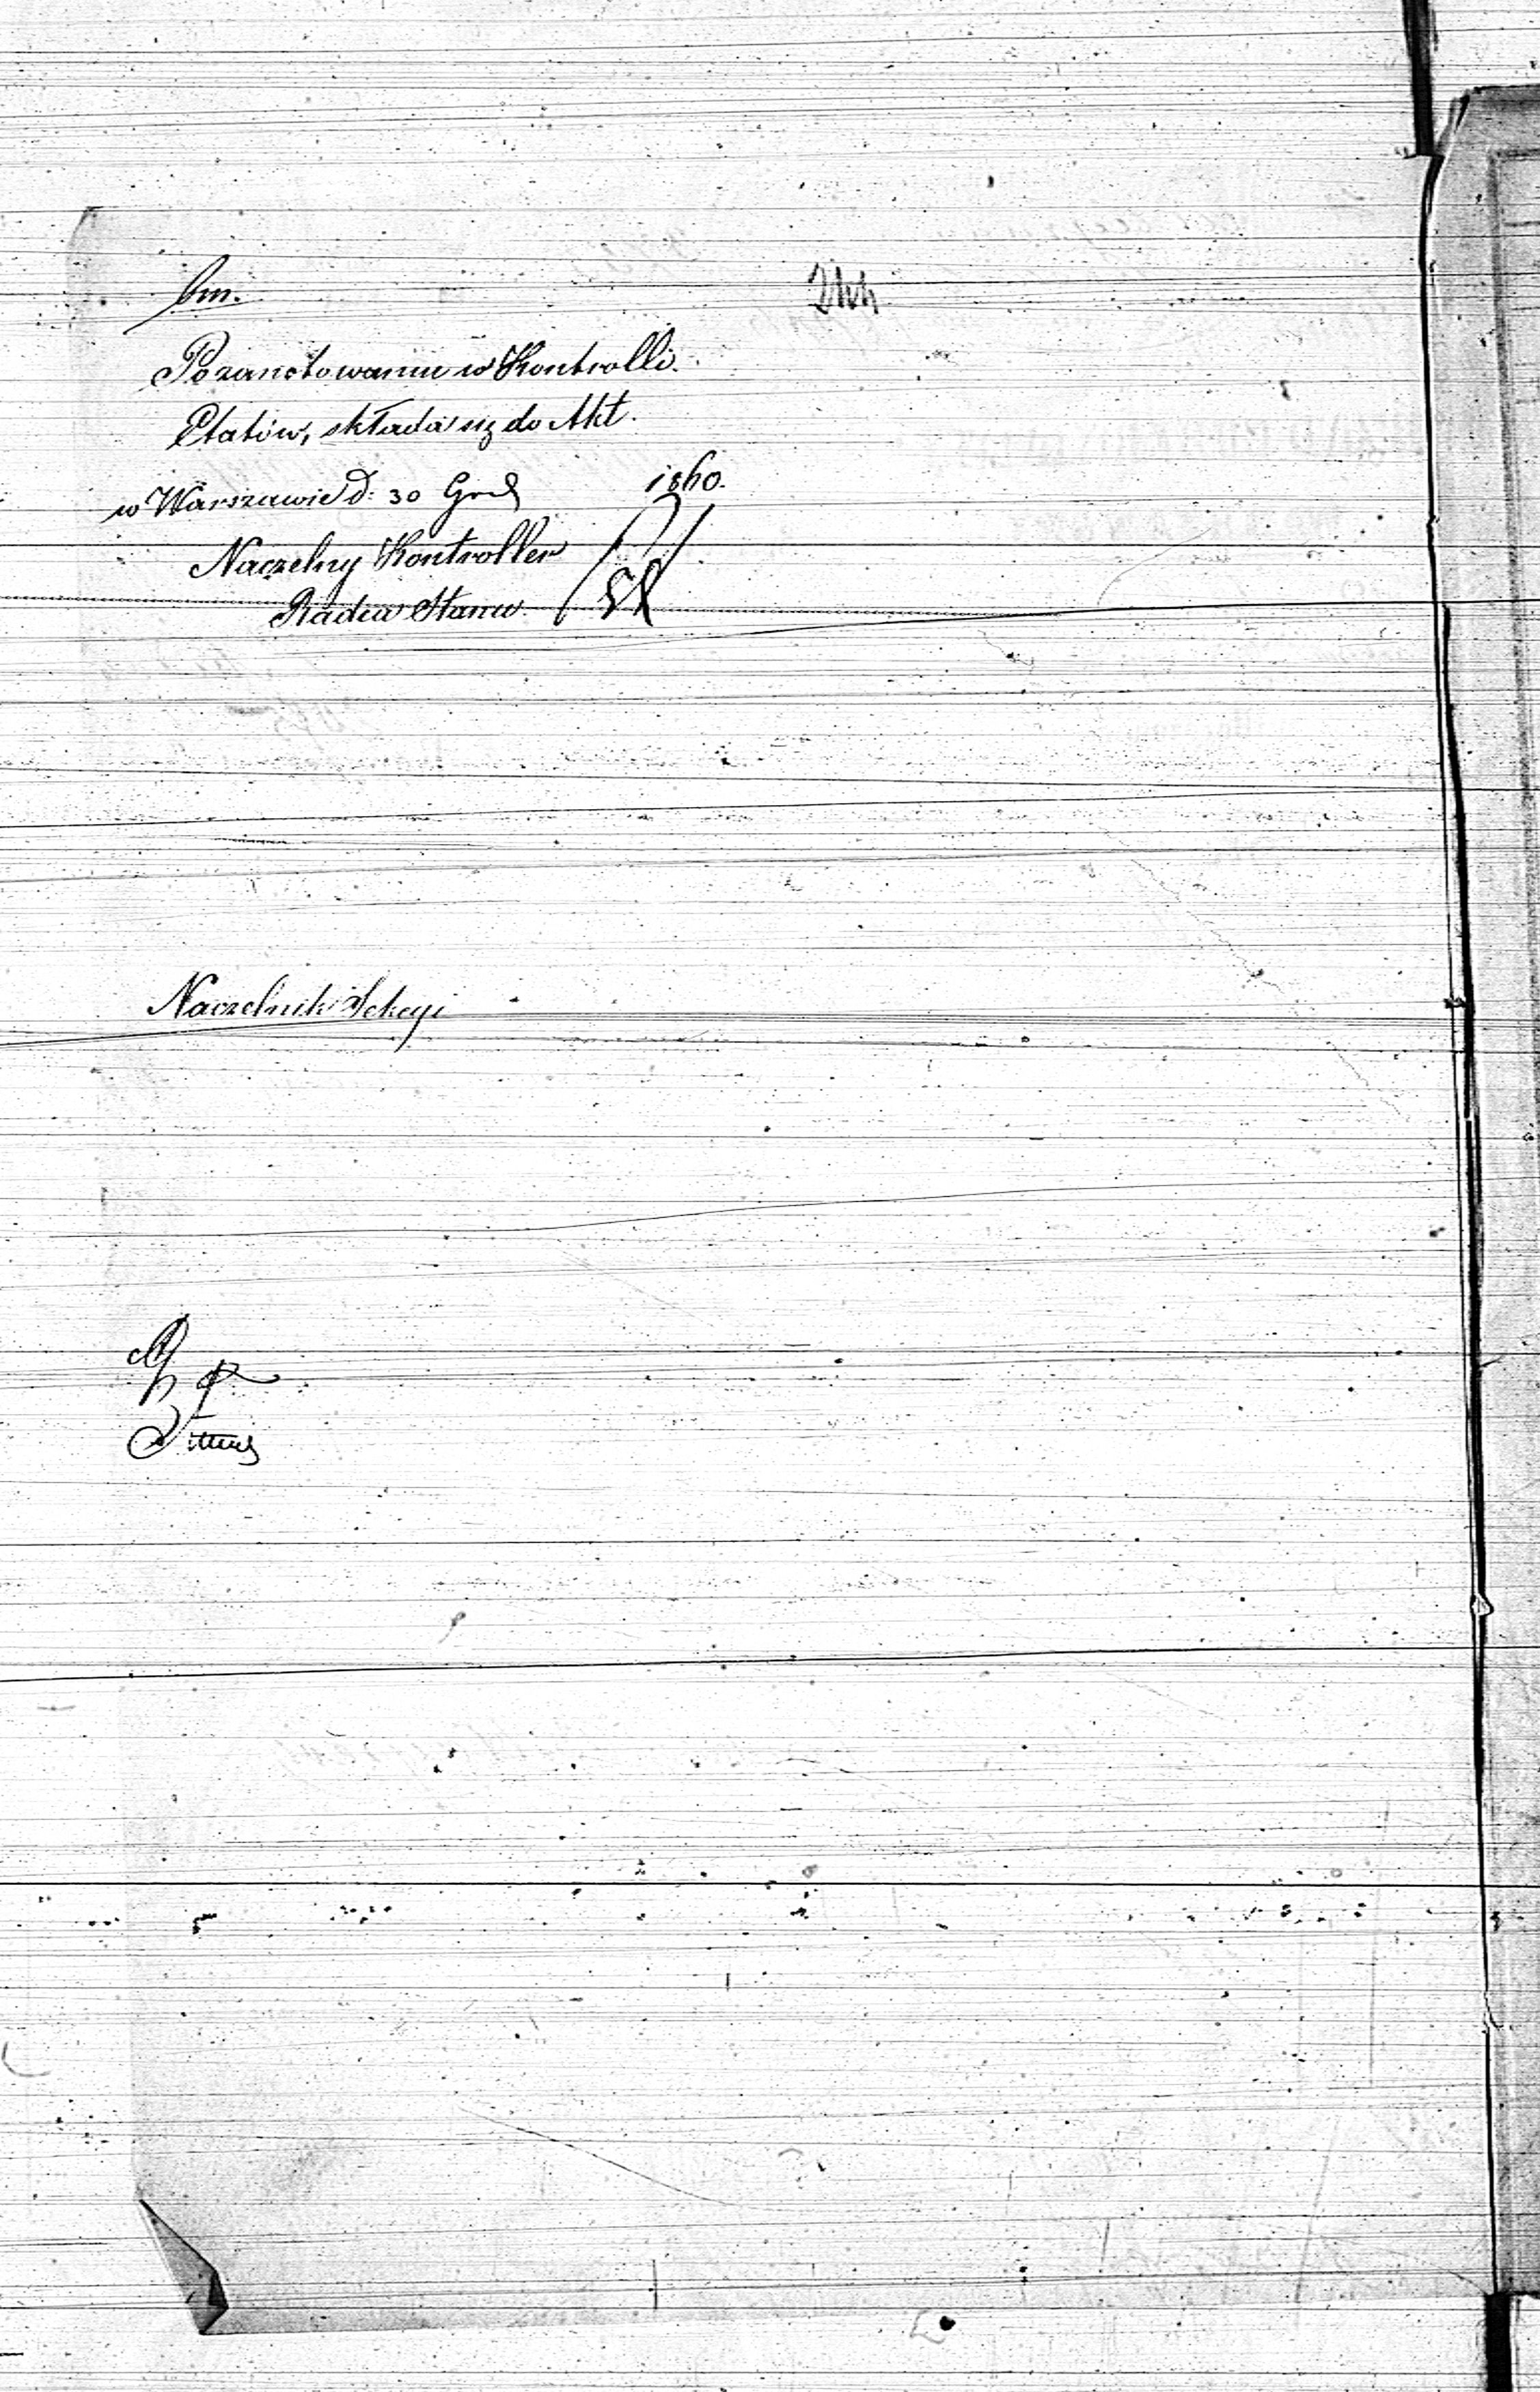 Po zanotowaniu w Kontrolli
Etatów, składa się do Akt.
w Warszawie d: 30 Grud 1860.
Naczelny Kontroller
Radca Stanu
Naczelnik Sekcyi